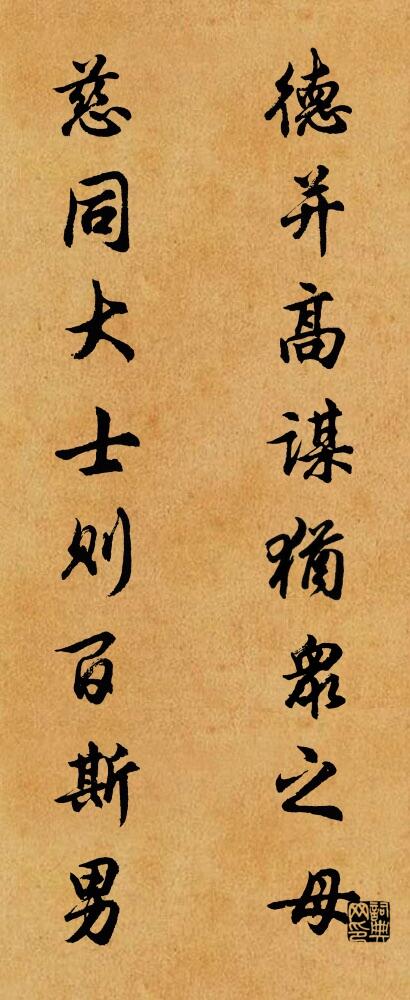 德并高谋犹眾之母
慈同大士则百斯男
詞典网印